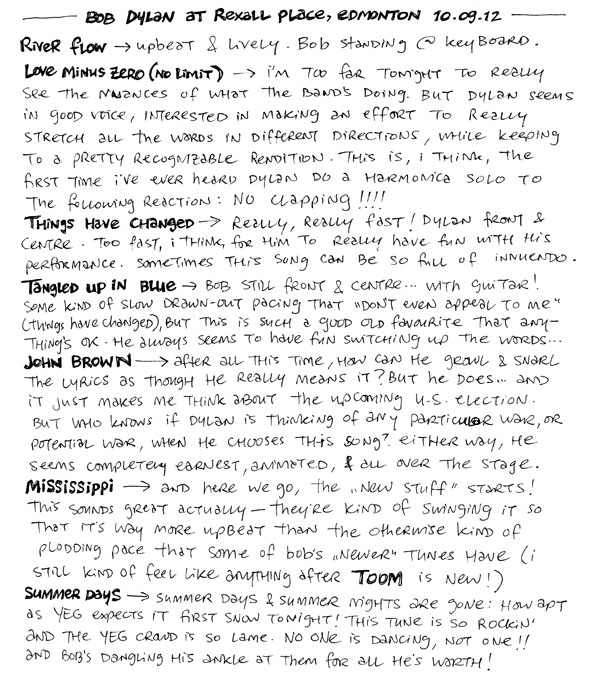 BOB DYLAN AT REXALL PLACE, EDMONTON 10.09.12
RIVER FLOW → UPBEAT & LIVELY. BOB STANDING @ KEYBOARD.
LOVE MINUS ZERO (NO LIMIT) --> I'M TOO FAR TONIGHT TO REALLY
SEE THE NUANCES OF WHAT THE BAND'S DOING. BUT DYLAN SEEMS
IN GOOD VOICE, INTERESTED IN MAKING AN EFFORT TO REALLY
STRETCH ALL THE WORDS IN DIFFERENT DIRECTIONS, WHILE KEEPING
TO A PRETTY RECOGNIZABLE RENDITION. THIS IS, I THINK, THE
FIRST TIME I'VE EVER HEARD DYLAN DO A HARMONICA SOLO TO
THE FOLLOWING REACTION: NO CLAPPING!!!!
THINGS HAVE CHANGED → REALLY, REALLY FAST! DYLAN FRONT &
CENTRE. TOO FAST, I THINK, FOR HIM TO REALLY HAVE FUN WITH HIS
PERFORMANCE. SOMETIMES THIS SONG CAN BE SO FULL OF INNUENDO.
TANGLED UP IN BLUE → BOB STILL FRONT & CENTRE... WITH GUITAR!
SOME KIND OF SLOW DRAWN-OUT PACING THAT "DON'T EVEN APPEAL TO ME"
(THINGS HAVE CHANGED), BUT THIS IS SUCH A GOOD OLD FAVOURITE THAT ANY-
THING'S OK. HE ALWAYS SEEMS TO HAVE FUN SWITCHING UP THE WORDS...
JOHN BROWN → AFTER ALL THIS TIME, HOW CAN HE GROWL & SNARL
THE LYRICS AS THOUGH HE REALLY MEANS IT? BUT HE DOES... AND
IT JUST MAKES ME THINK ABOUT THE UPCOMING U.S. ELECTION.
BUT WHO KNOWS IF DYLAN IS THINKING OF ANY PARTICULAR WAR, OR
POTENTIAL WAR, WHEN HE CHOOSES THIS SONG? EITHER WAY, HE
SEEMS COMPLETELY EARNEST, ANIMATED, & ALL OVER THE STAGE.
MISSISSIPPI → AND HERE WE GO, THE „NEW STUFF" STARTS!
THIS SOUNDS GREAT ACTUALLY — THEY'RE KIND OF SWINGING IT SO
THAT IT'S WAY MORE UPBEAT THAN THE OTHERWISE KIND OF
PLODDING PACE THAT SOME OF BOB'S „NEWER" TUNES HAVE (I
STILL KIND OF FEEL LIKE ANYTHING AFTER TOOM IS NEW!)
SUMMER DAYS → SUMMER DAYS & SUMMER NIGHTS ARE GONE: HOW APT
AS YEG EXPECTS IT FIRST SNOW TONIGHT! THIS TUNE IS SO ROCKIN'
AND THE YEG CROWD IS SO LAME. NO ONE IS DANCING, NOT ONE!!
AND BOB'S DANGLING HIS ANKLE AT THEM FOR ALL HE'S WORTH!